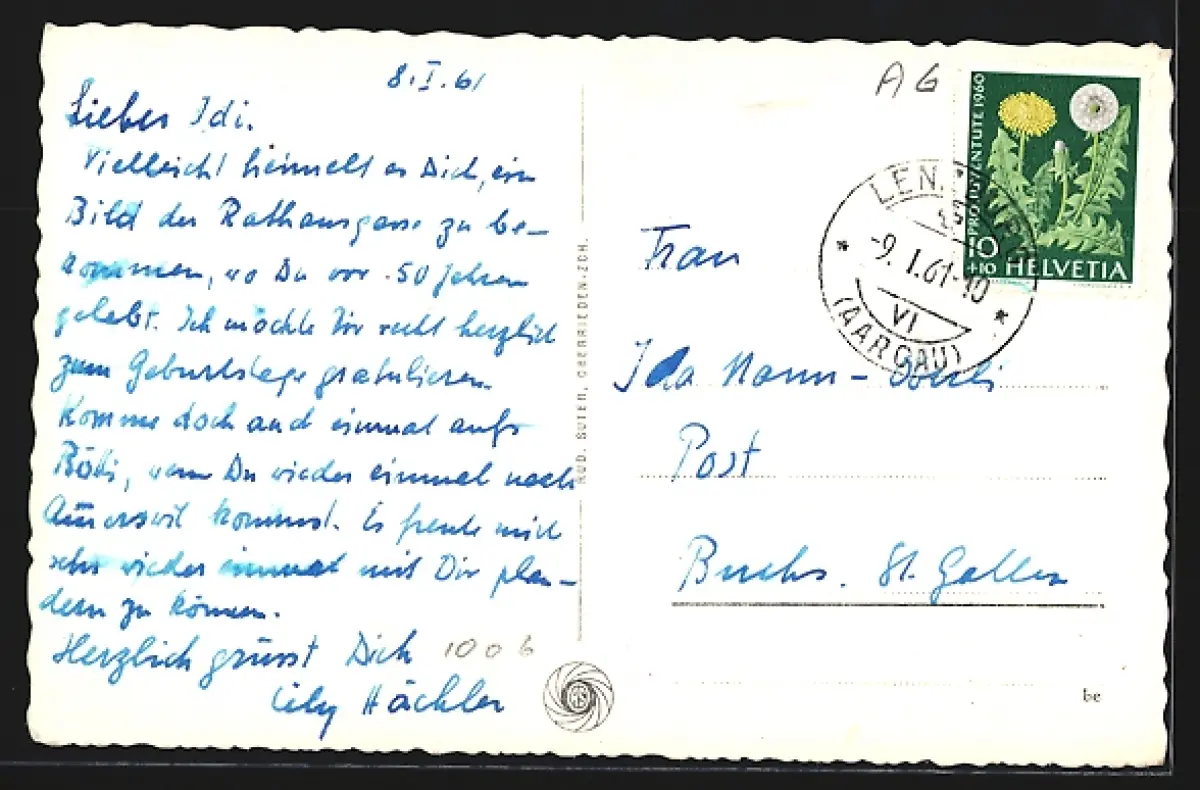 8.I.61
Liebes Idi.
Vielleicht heimelt es Dich, ein
Bild der Rathausgasse zu be-
kommen, wo Du vor 50 Jahren
gelebt. Ich möchte Dir recht herzlich
zum Geburtstage gratulieren.
Komme doch auch einmal aufs
Bööli, wenn Du wieder einmal nach
kommst. Es freute mich
sehr wieder einmal mit Dir plau-
dern zu können.
Herzlich grüsst Dich
Lily Hächler
1006
RUD. SUTER, OBERRIEDEN-ZCH.
AG
PRO JUVENTUTE 1960
10
+10 HELVETIA
LEN
-9.I.61-10
VI
(AARGAU)
Frau
Ida Mann-
Post
Buchs. St. Gallen
be